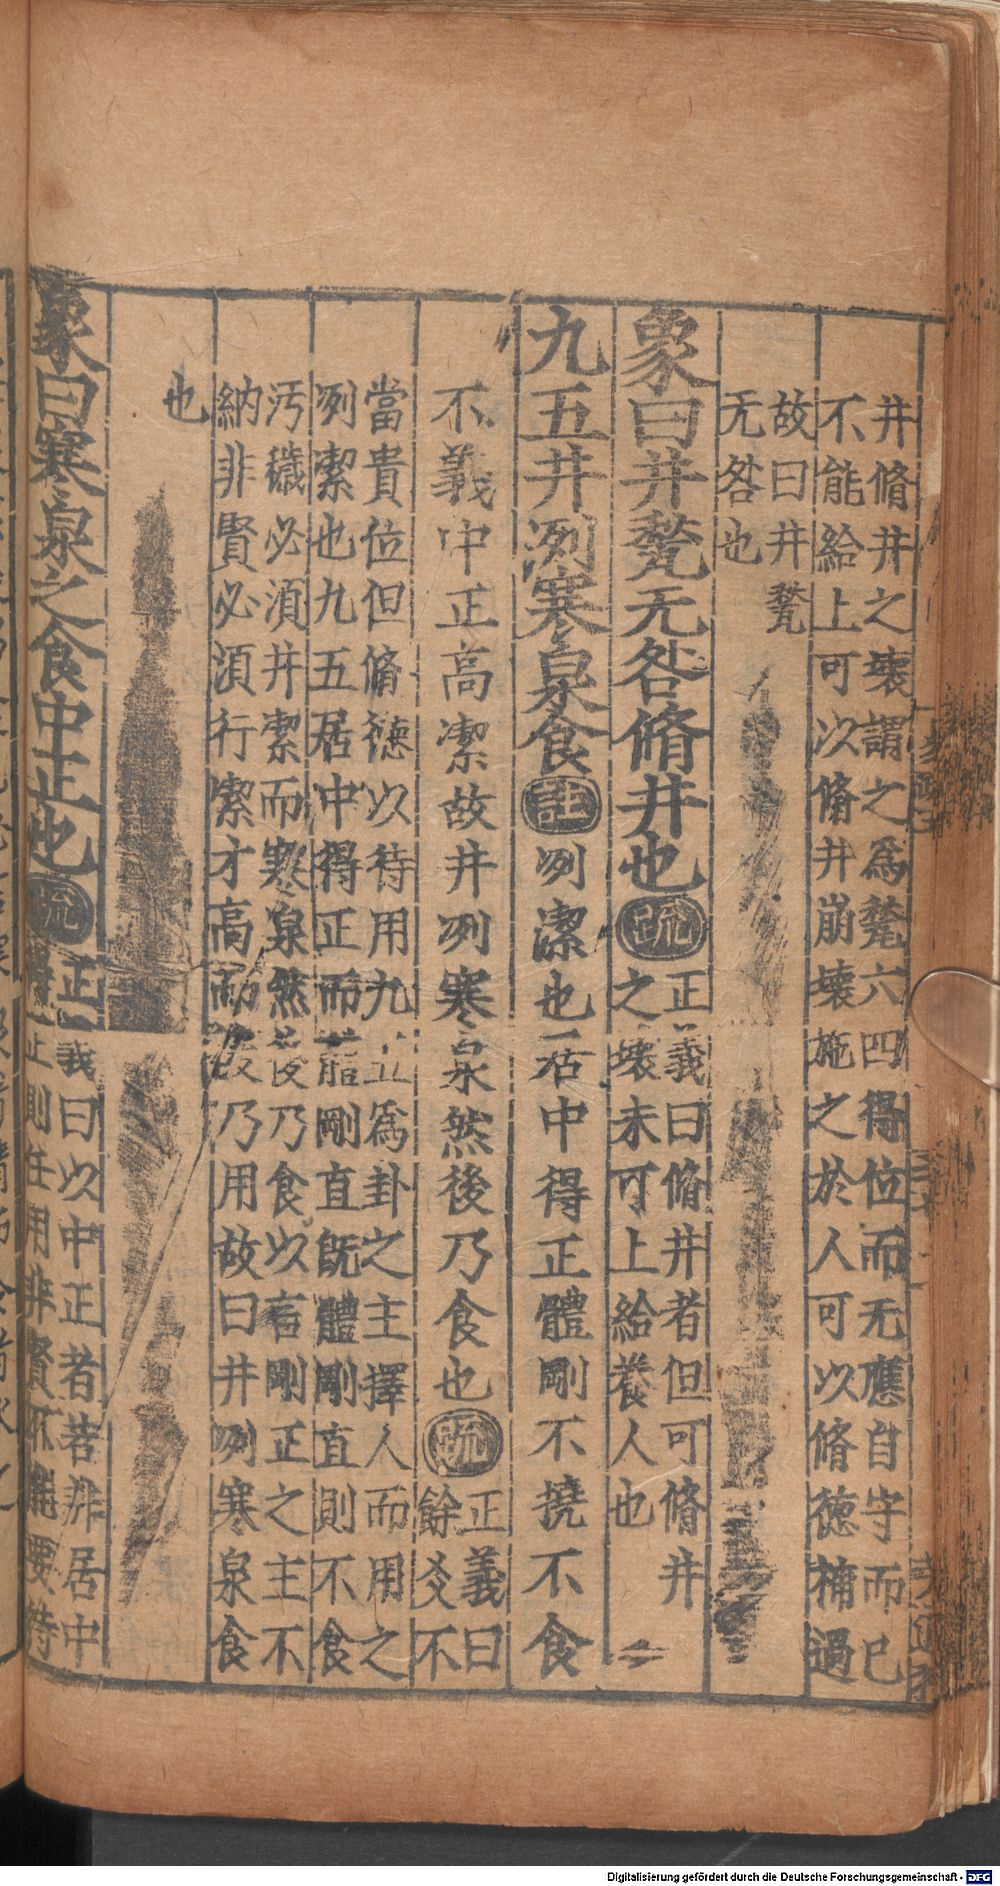 井脩井之壞謂之爲甃六四得位而无應自守而已
不能給上可以脩井崩壞施之於人可以脩德補過
故曰井甃
无咎也
象曰井甃无咎脩井也疏正義曰脩井者但可脩井
之壞未可上給養人也
九五井冽寒泉食註冽潔也居中得正體剛不撓不食
不義中正高潔故井冽寒泉然後乃食也疏正義曰
餘爻不
當貴位但脩德以待用九五爲卦之主擇人而用之
冽潔也九五居中得正而體剛直旣體剛直則不食
汚穢必湏井潔而寒泉然後乃食以言剛正之主不
納非賢必湏行潔才高而後乃用故曰井冽寒泉食
也
象曰寒泉之食中正也疏正義曰以中正者若非居中
得正則任用非賢不能要待
Digitalisierung gefördert durch die Deutsche Forschungsgemeinschaft - DFG